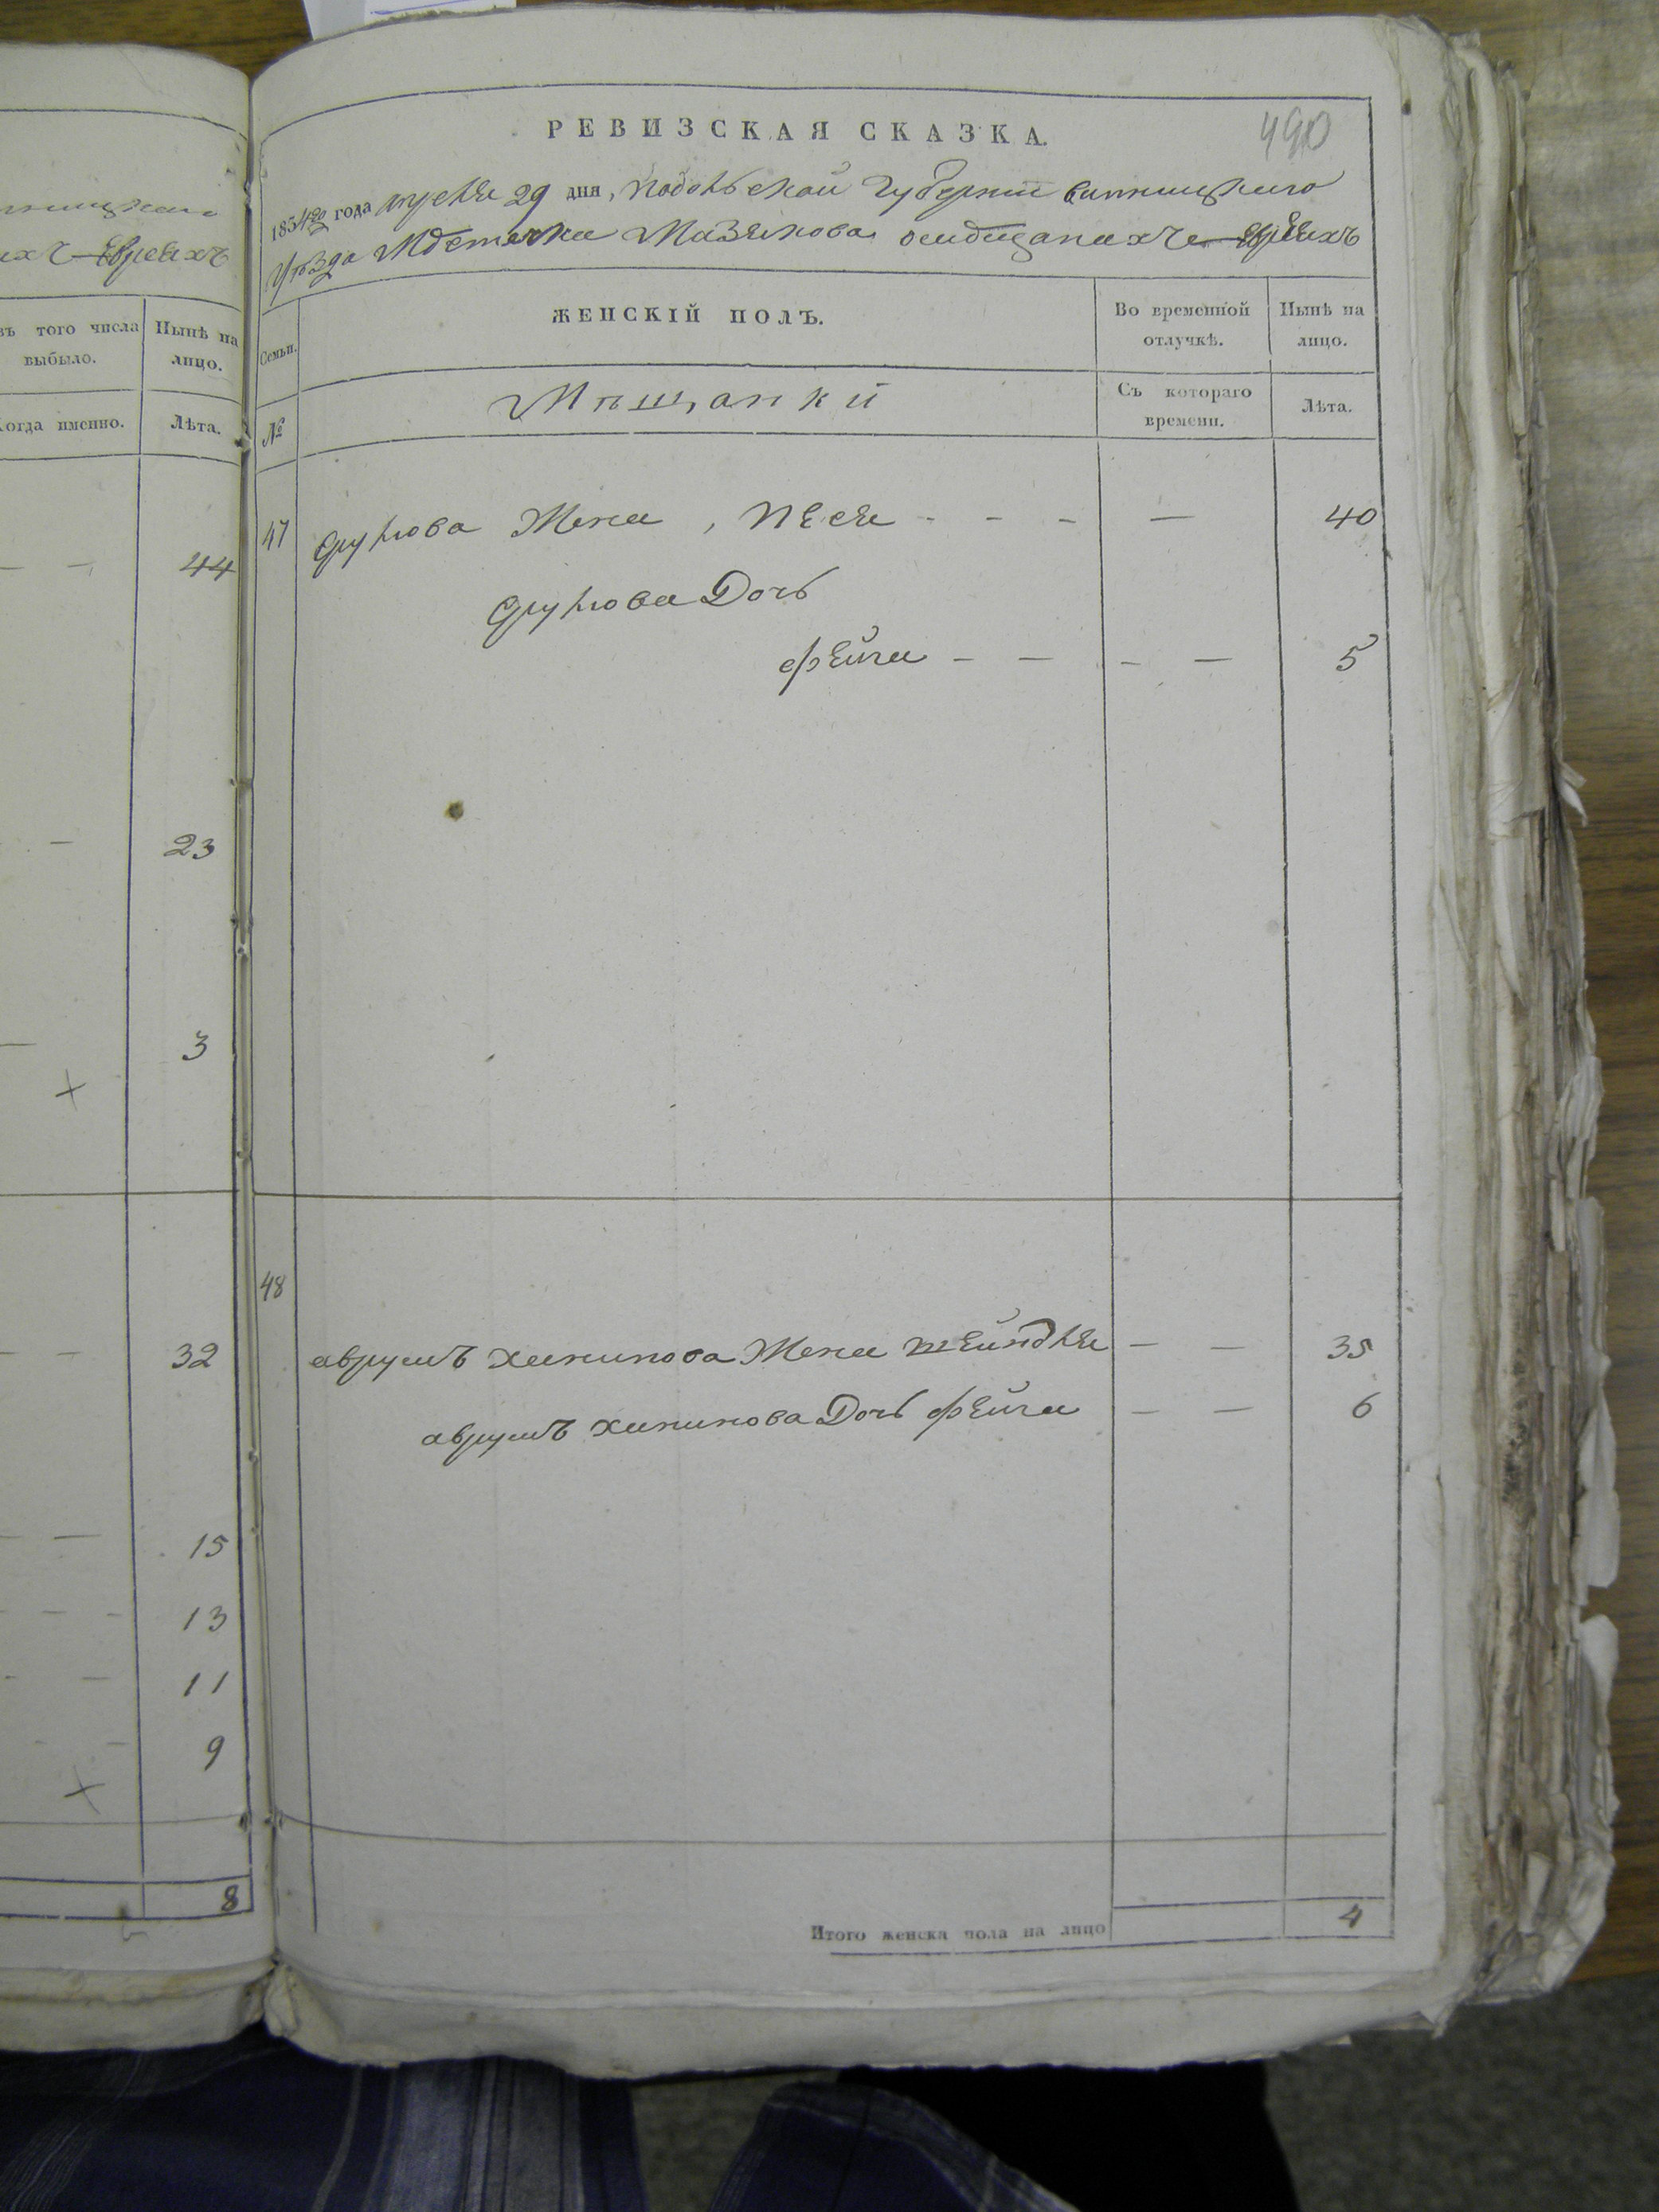 490
РЕВИЗСКАЯ СКАЗКА.
года апреля 29 дня, Подольской Губернии Винницкаго
Уѣзда Местечка Мазянова о мещанахъ Евреяхъ
Евреяхъ
того числа выбыло.
Нынѣ на лицо.
Когда именно.
Лѣта.
Семьи.
ЖЕНСКІЙ ПОЛЪ.
Во временной отлучкѣ.
Нынѣ на лицо.
№
Мѣщанки
Съ котораго времени.
Лѣта.
44
23
3
32
15
13
11
9
8
47 Срулова Жена, Песя - - - — 40
Срулова Дочь
Фейга — — - — 5
48
аврумъ Ханинова Жена Шейндля — — 35
аврумъ Ханинова Дочь Фейга — — 6
Итого женска пола на лицо 4